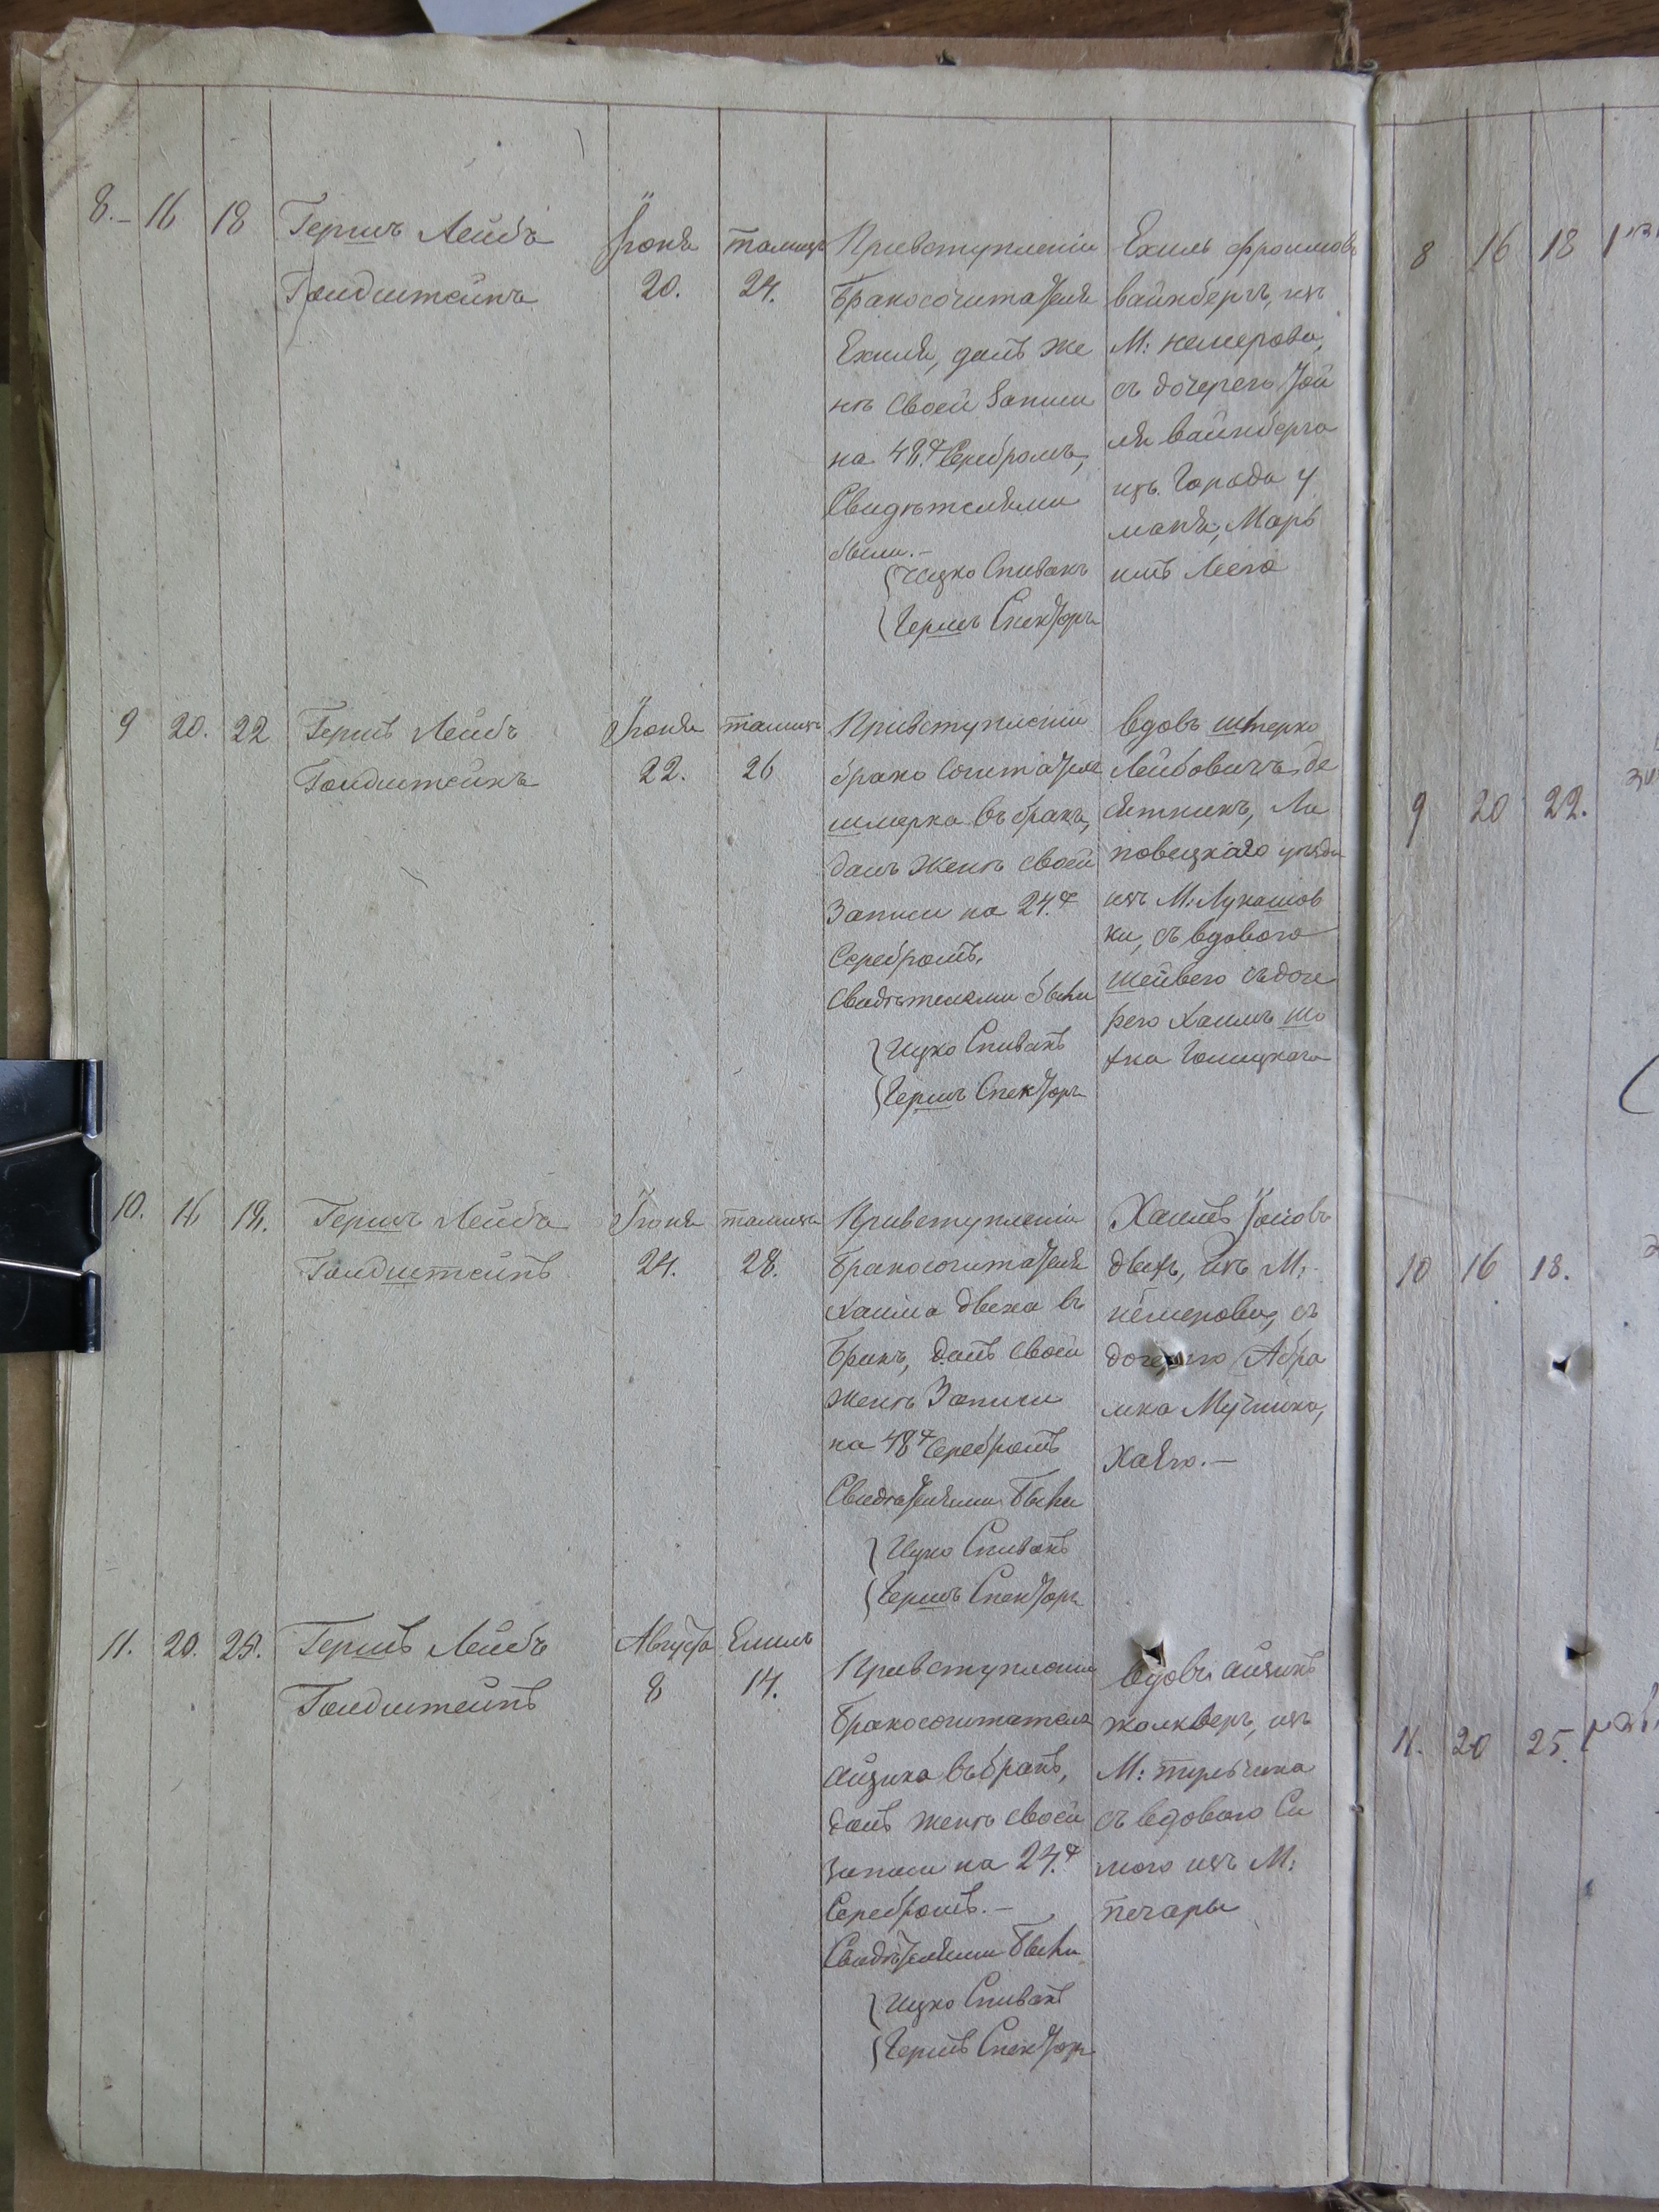 8. 16 18
Гершъ Лейбъ
Гольдштейнъ
Іюня
20.
тамизъ
24.
Привступленіи
бракосочитателя
Ехиля, далъ же
нѣ своей Записи
на 48 Серебромъ,
Свидѣтелями
были.
Ицко Спивакъ
Гершъ Спекторъ
Ехиль Фроимовъ
вайнбергъ, изъ
М: немерова,
съ дочерею Іой
ля вайнберга
изъ Города у
маня, Марь
имъ Леею
9 20. 22
Гершъ Лейбъ
Гольдштейнъ
Іюня
22.
тамизъ
26
Привступленіи
брако сочитателя
шмерка въ бракъ,
далъ женѣ своей
Записи на 24.
Серебромъ,
Свидѣтелями были
Ицко Спивакъ
Гершъ Спекторъ
вдовъ шмерко
Лейбовичъ де
сятникъ, Ли
повецкаго уѣзда
изъ М: Лукашов
ки, съ вдовою
шейвею съ доче
рею Хаимъ
Голицкаго
10. 16 18.
Гершъ Лейба
Гольдштейнъ
Іюня
24.
тамизъ
28.
Привступленіи
бракосочитателя
хаима двеха въ
бракъ, далъ своей
женѣ Записи
на 48 Серебромъ
Свидѣтелями были
Ицко Спивакъ
Гершъ Спекторъ
Хаимъ Іойовъ
двехъ, изъ М:
немерова, съ
дочерью Абра
мка Мучника,
Хаею.
11. 20. 25.
Гершъ Лейбъ
Гольдштейнъ
Августа
8
Елиль
14.
Привступленіи
бракосочитателя
айзика въ бракъ,
далъ женѣ своей
записи на 24.
Серебромъ.
Свидѣтелями были
Ицко Спивакъ
Гершъ Спекторъ
вдовъ айзикъ
жолкверъ, изъ
М: тульчина
съ вдовою Си
мою изъ М:
печары
8 16 18
9 20 22.
10 16 18.
11. 20 25.